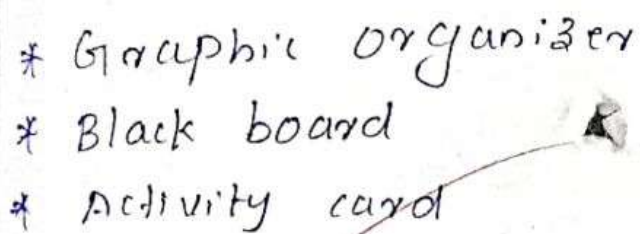 * Graphic organizer
* Black board
* Activity card